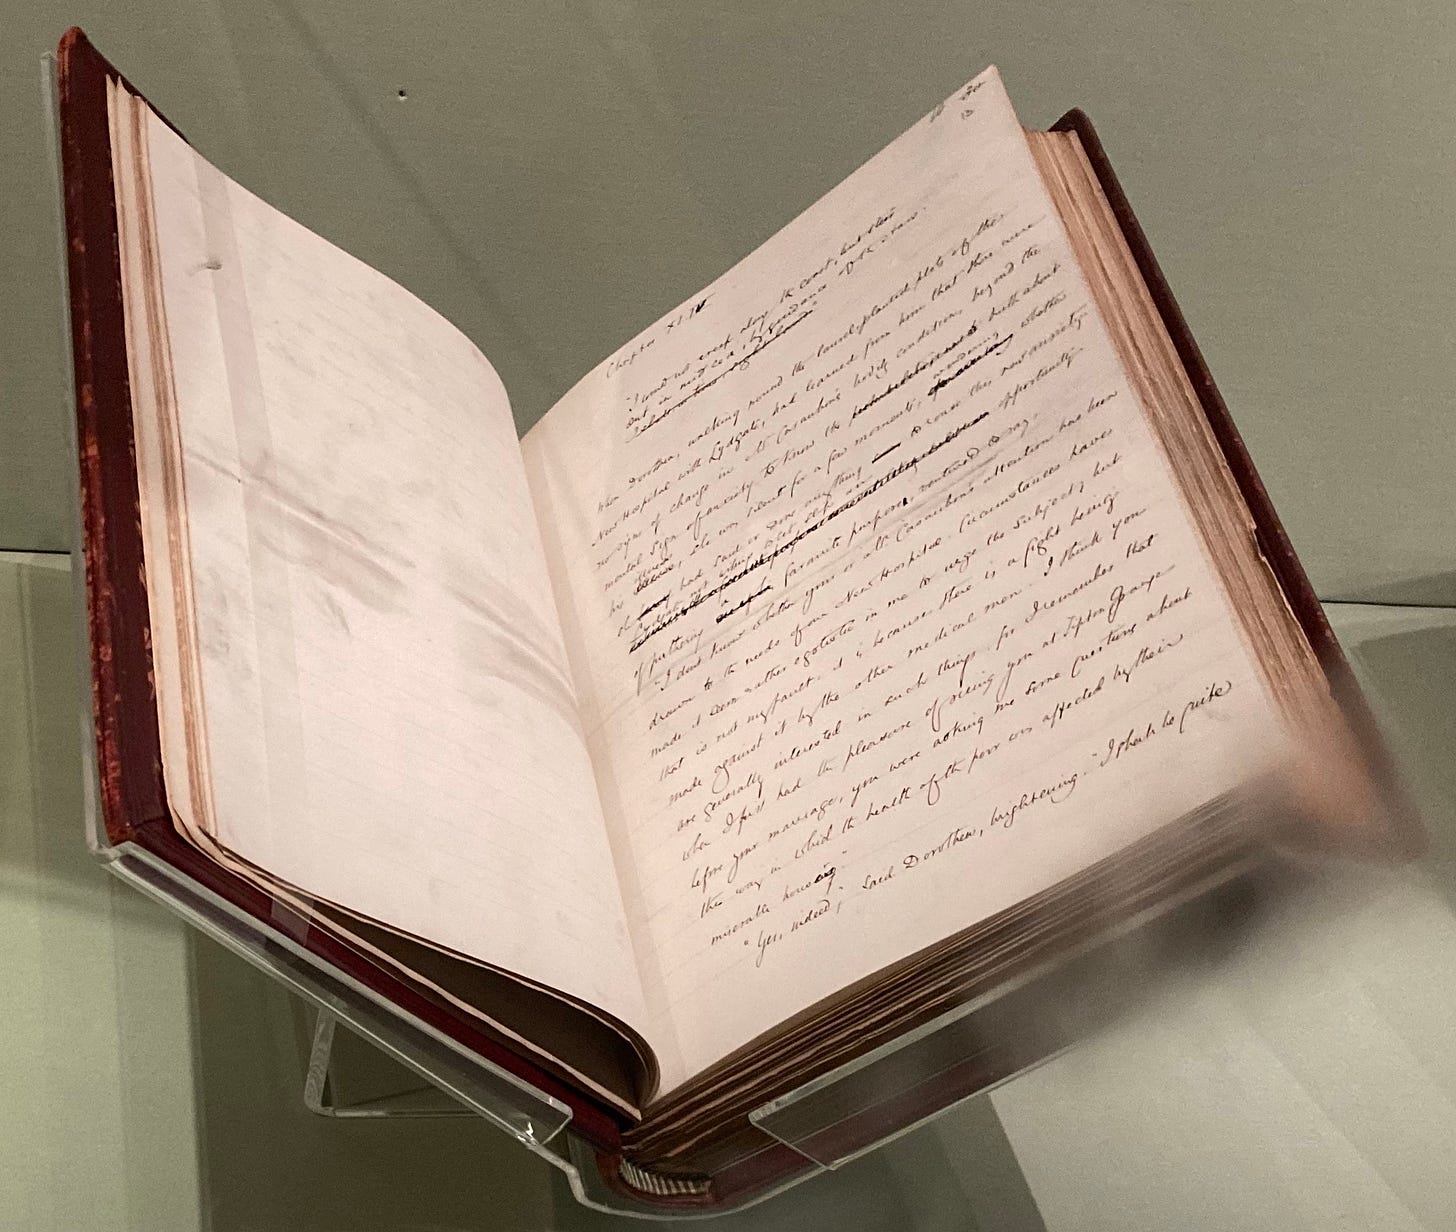 Chapter XLIV
"I would not creep along the coast, but steer
Out in mid sea, by guidance of the stars."
When Dorothea, walking round the laurel-planted plots of the
New Hospital with Lydgate, had learned from him that there were
no signs of change in Mr Casaubon's bodily condition beyond the
mental sign of anxiety to know the truth about
his illness, she was silent for a few moments, wondering whether
she had said or done anything to rouse this new anxiety.
Lydgate, not willing to let slip an opportunity
of furthering a favourite purpose, ventured to say,
"I don't know whether your or Mr Casaubon's attention has been
drawn to the needs of our New Hospital. Circumstances have
made it seem rather egotistic in me to urge the subject; but
that is not my fault: it is because there is a fight being
made against it by the other medical men. I think you
are generally interested in such things, for I remember that
when I first had the pleasure of seeing you at Tipton Grange
before your marriage, you were asking me some questions about
the way in which the health of the poor was affected by their
miserable housing."
"Yes, indeed," said Dorothea, brightening. "I shall be quite